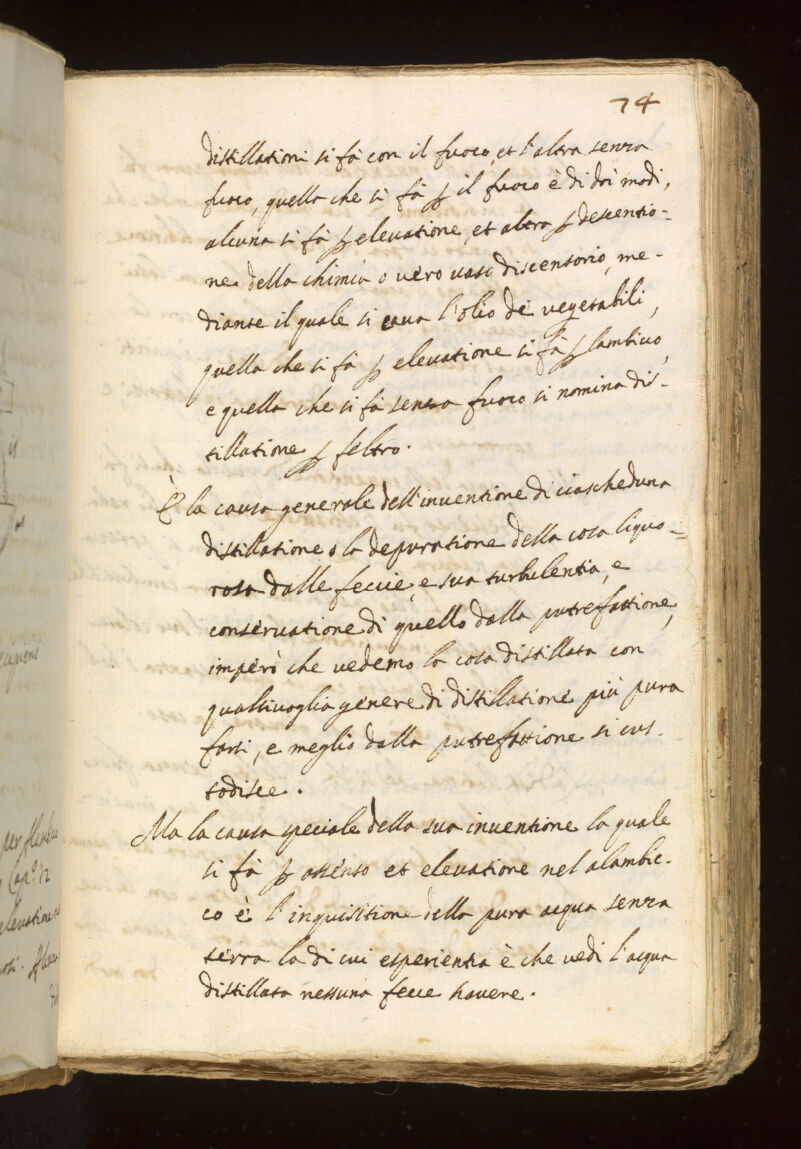 74
distillationi si fà con il fuoco, et l'altra senza
fuoco, quella che si fà ꝑ il fuoco è di doi modi,
alcuna si fà ꝑ elevatione, et altra ꝑ descentio-
ne della chimia o vero vaso discensorio, me-
diante il quale si cava l'olio dei vegetabili,
quella che si fà ꝑ elevatione si fà ꝑ lambico,
e quella che si fà senza fuoco si nomina dis-
tillatione ꝑ feltro.
È la causa generale dell'inventione di ciascheduna
distillatione o la depuratione della cosa liquo-
rosa dalle feccie, e sua turbulentia, e
conservatione di quello dalla putrefattione,
imperò che vedemo la cosa distillata con
qualsivoglia genere di distillatione più pura
farsi, e meglio dalla putrefattione si cus-
todisce.
Ma la causa speciale della sua inventione la quale
si fà ꝑ assenso et elevatione nel alambic-
co è l'inquisitione della pura acqua senza
terra la di cui esperientia è che vedi l'acqua
distillata nessuna fecce havere.
per
Cap.º 12
elevatione